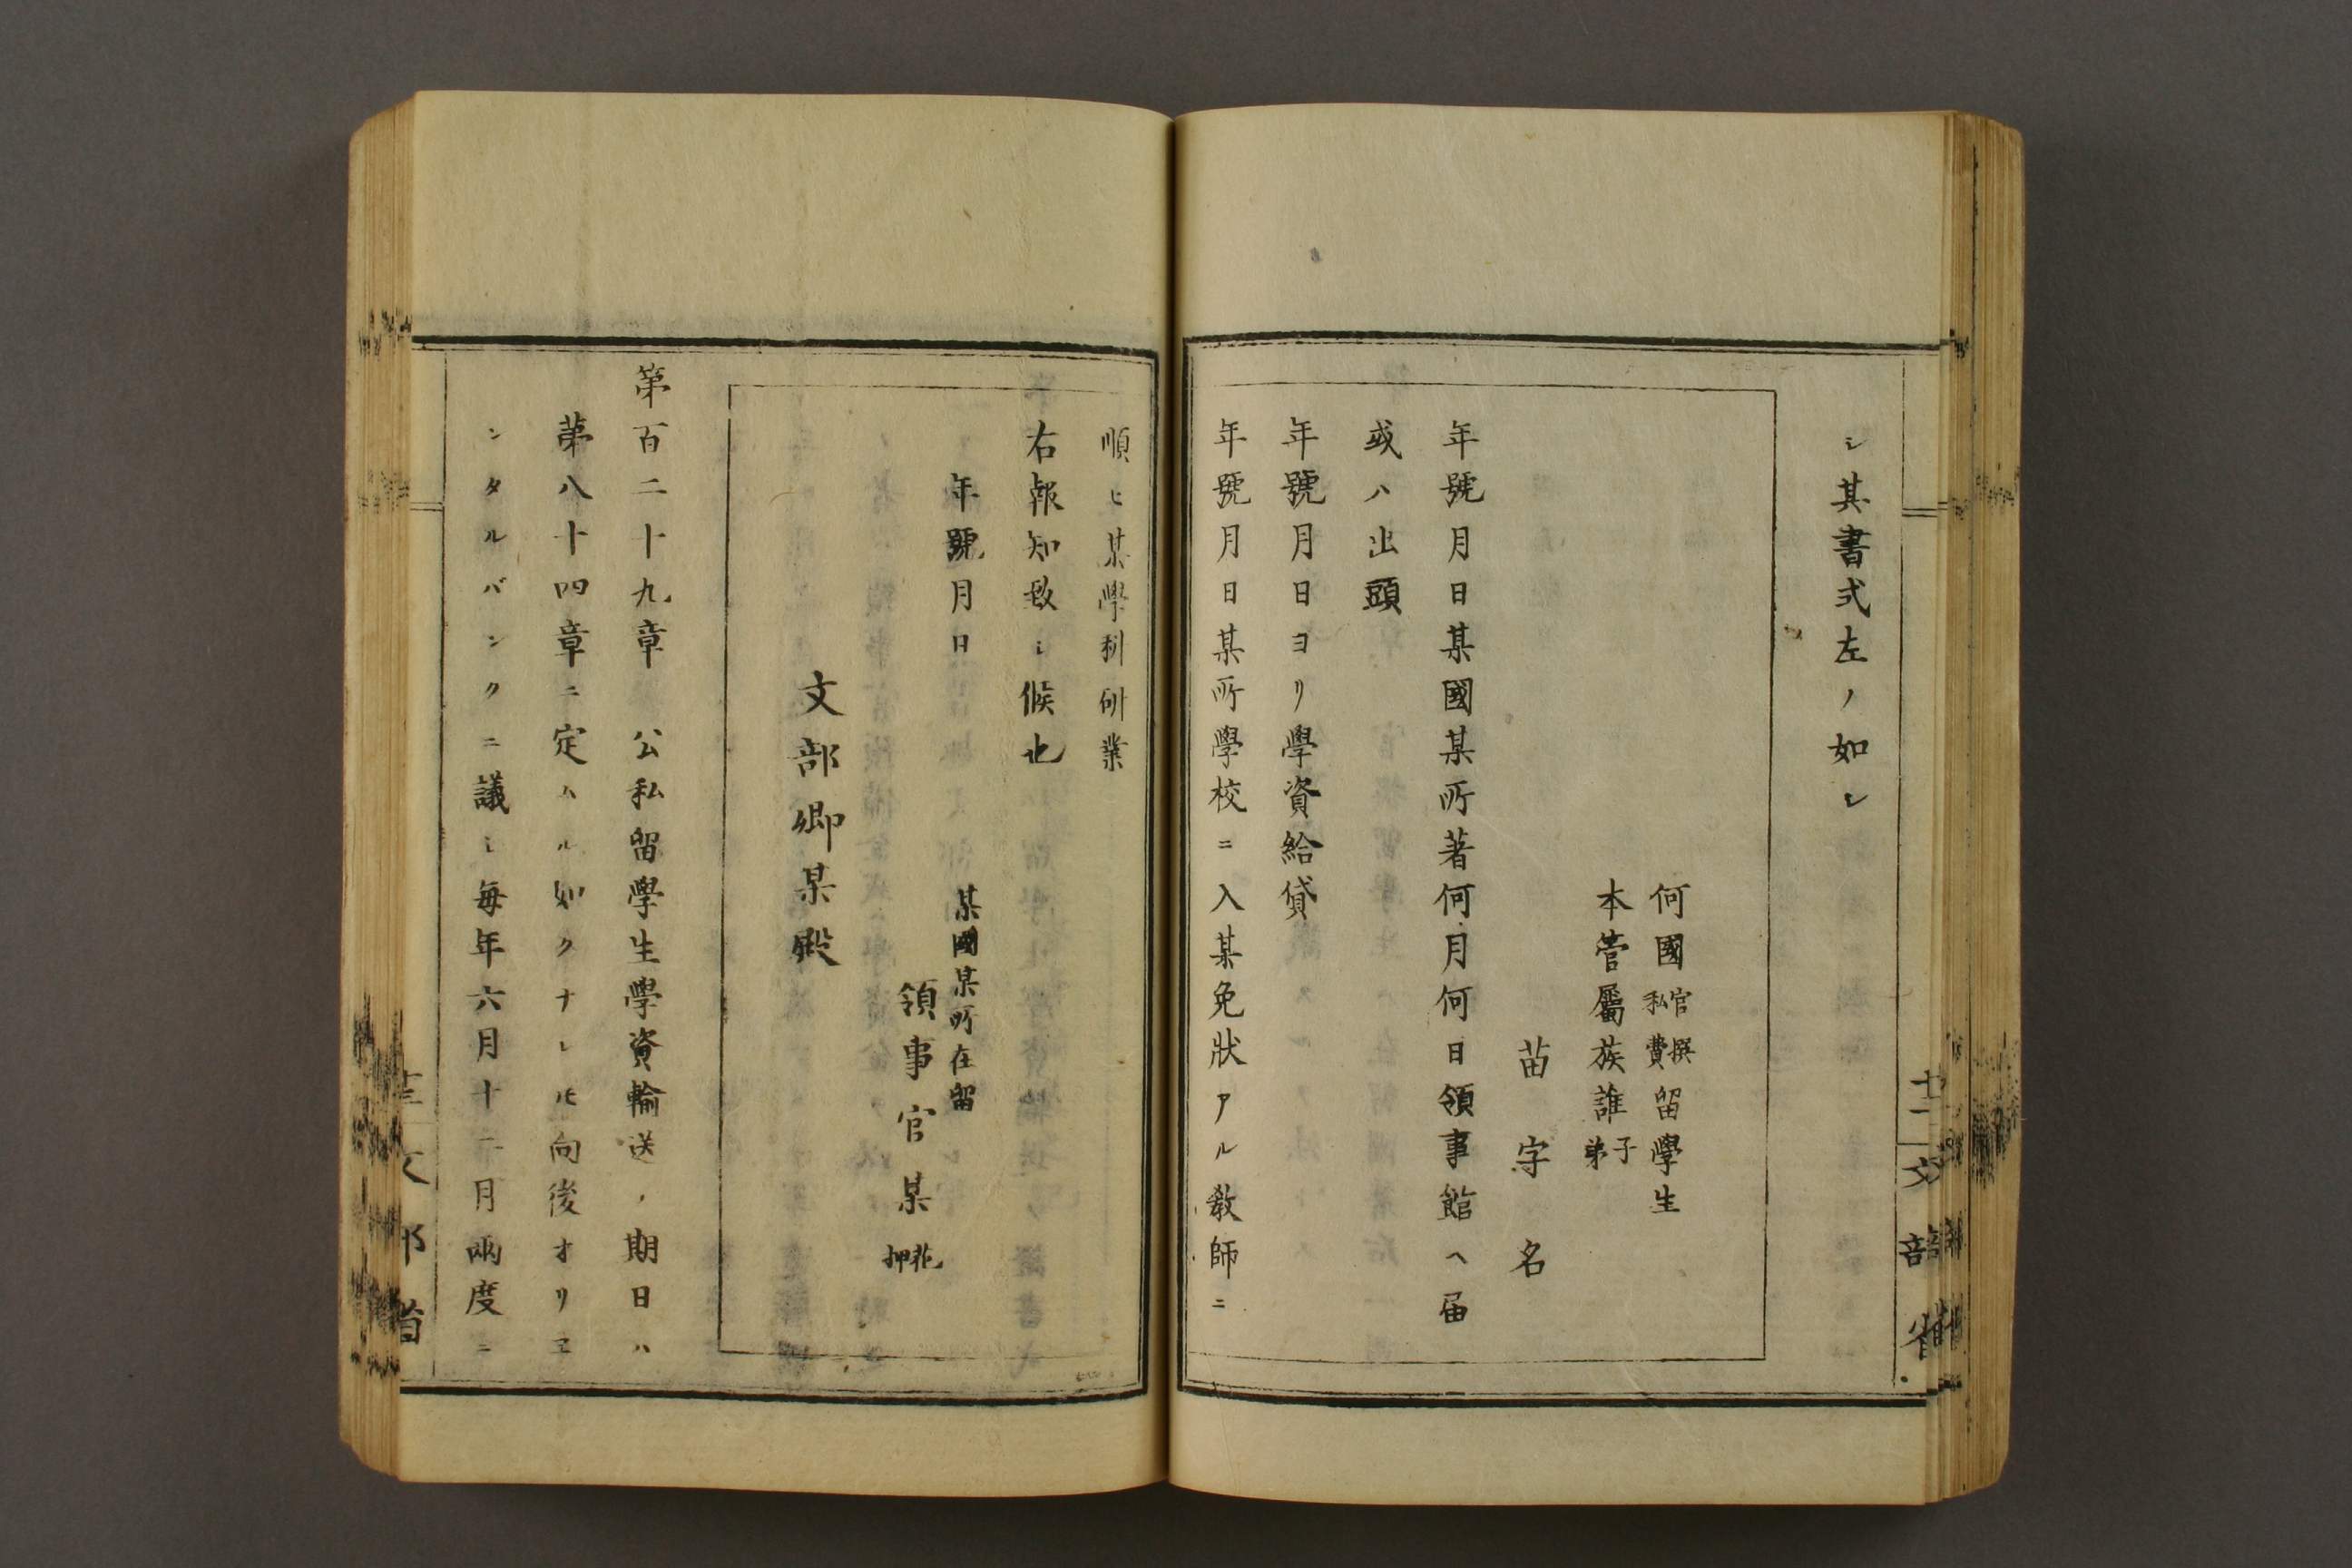 シ其書式左ノ如シ
何國官撰私費留學生
本菅屬族誰子弟
苗字名
年號月日某國某所著何月何日領事館ヘ届
或ハ出頭
年號月日ヨリ學資給貸
年號月日某所學校ニ入某免狀アル敎師ニ
十二 文部省
順ヒ某學科研業
右報知致シ候也
年號月日
某國某所在留
領事官某花押
文部卿某殿
第百二十九章 公私留學生學資輸送ノ期日ハ
第八十四章ニ定ムル如クナレ𪜈向後オリヱ
ンタルバンクニ議シ毎年六月十二月兩度ニ
文部省